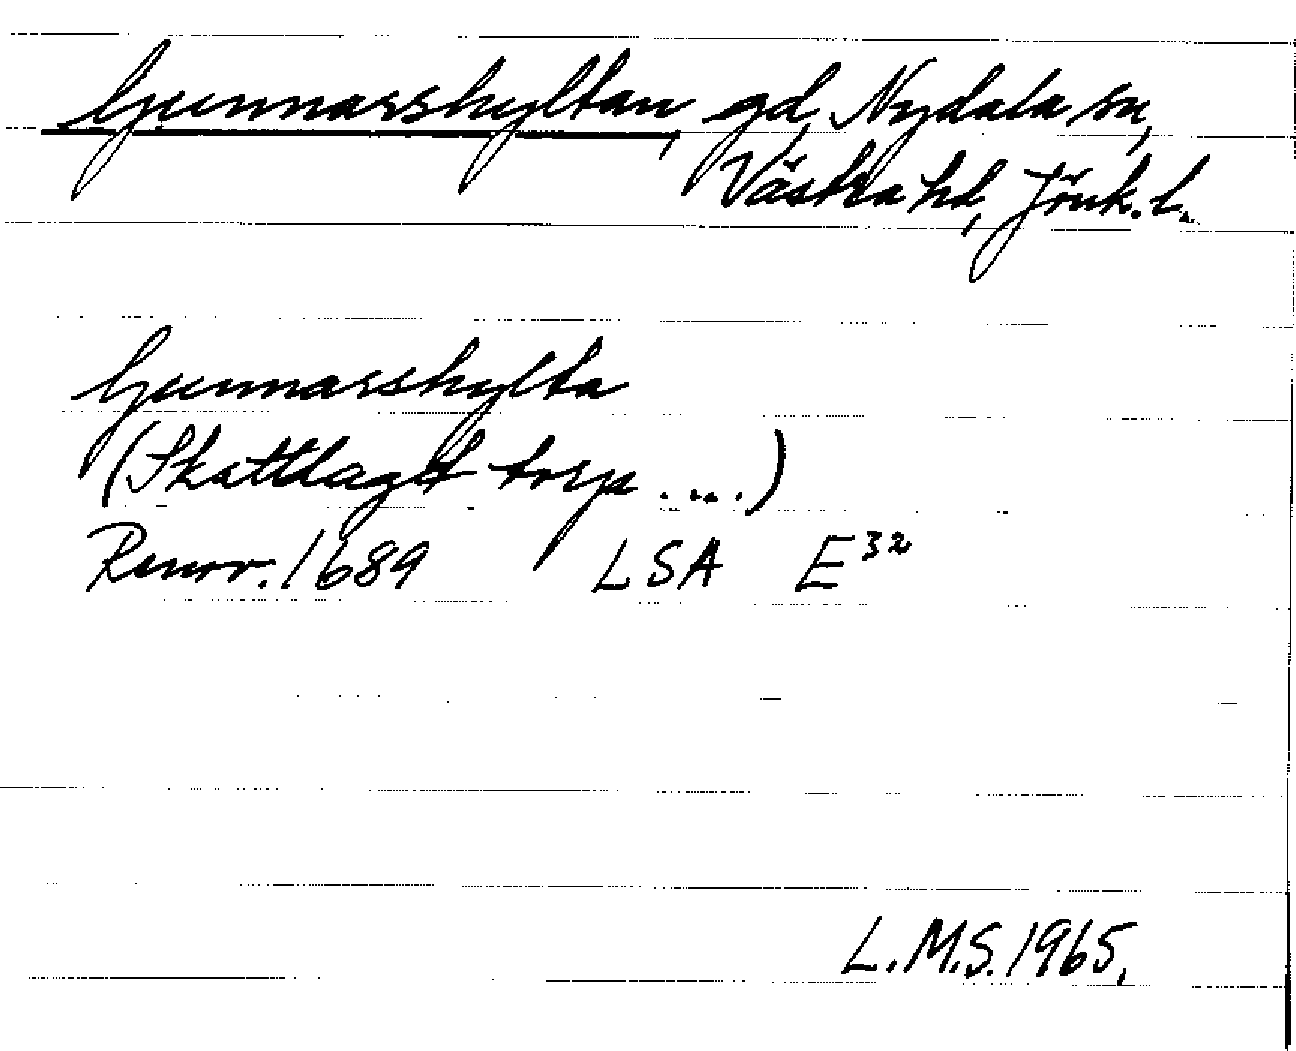 Gunnarshyltan, gd, Nydala sn,
Västra hd, Jönk. l.
Gunnarshylta
(Skattlagt torp ....)
Renov. 1689 LSA E³²
L.M.S. 1965.